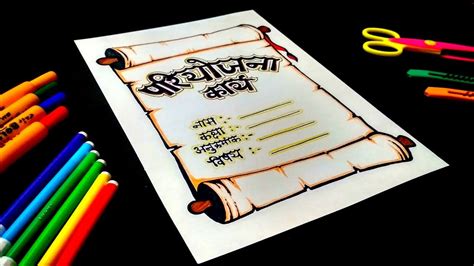 परियोजना
कार्य
नाम
कक्षा
अनुक्रमांक
विषय